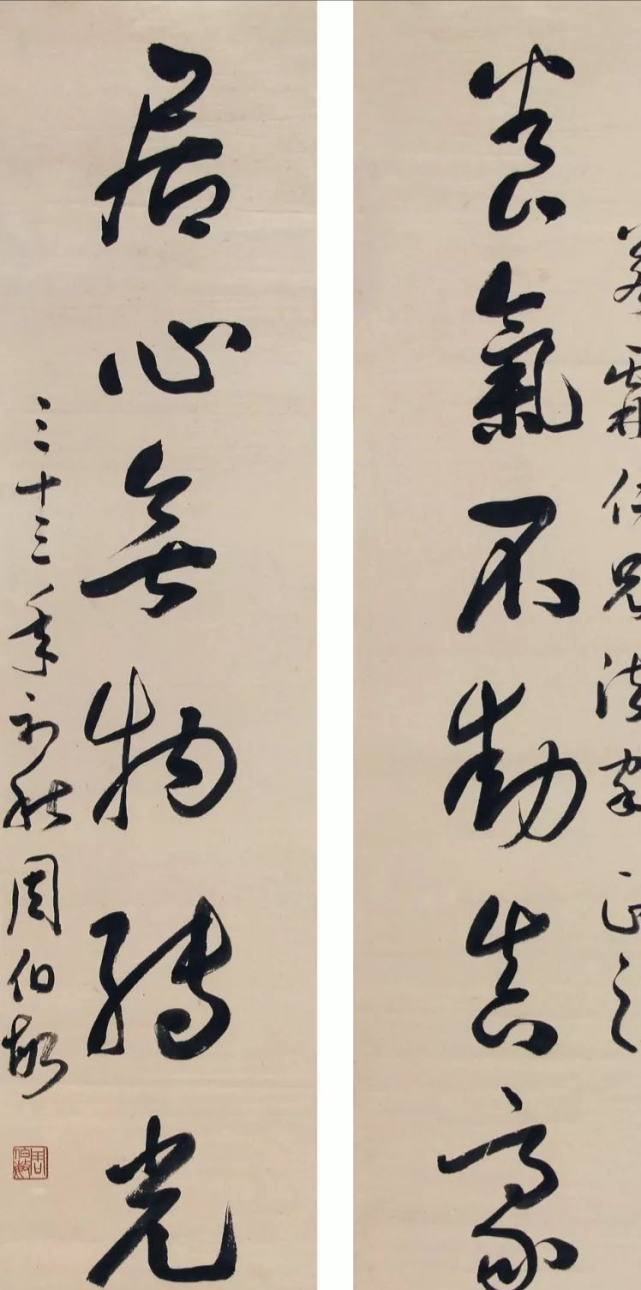 霖仁兄法家正之
養氣不動真豪
居心無物轉光
三十三年初秋周伯敏